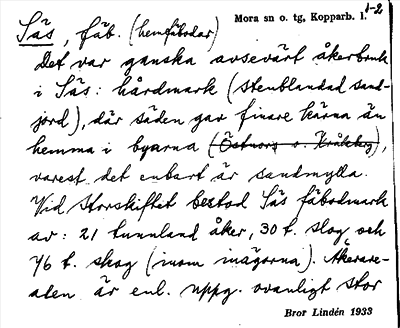 Mora sn o. tg, Kopparb. l. 1-2
Säs, fäb. (hemfäbodar)
Det var ganska avsevärt åkerbruk
i Säs: hårdmark (stenblandad sand-
jord), där säden gav finare kärna än
hemma i byarna (Östnor o. Kråkberg),
varest det enbart är sandmylla.
Vid storskiftet bestod Säs fäbodmark
av: 21 tunnland åker, 30 t. slog och
46 t. skog (inom inägorna). Åkerare-
alen är enl. uppg. ovanligt stor
Bror Lindén 1933